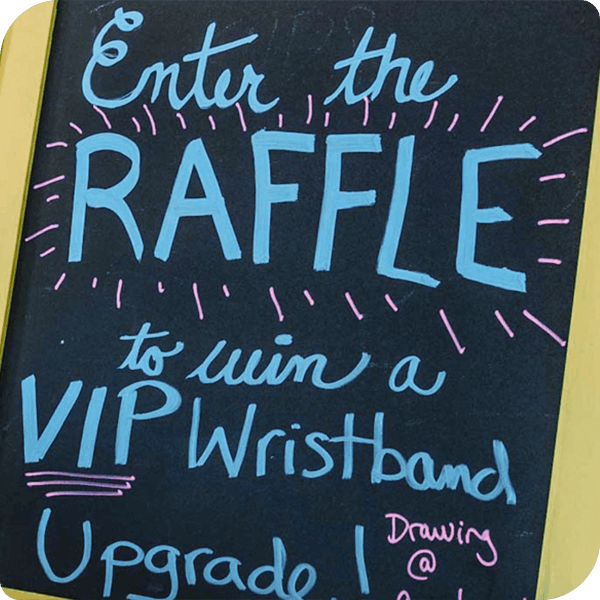 Enter the
RAFFLE
to win a
VIP Wristband
Upgrade!
Drawing
@